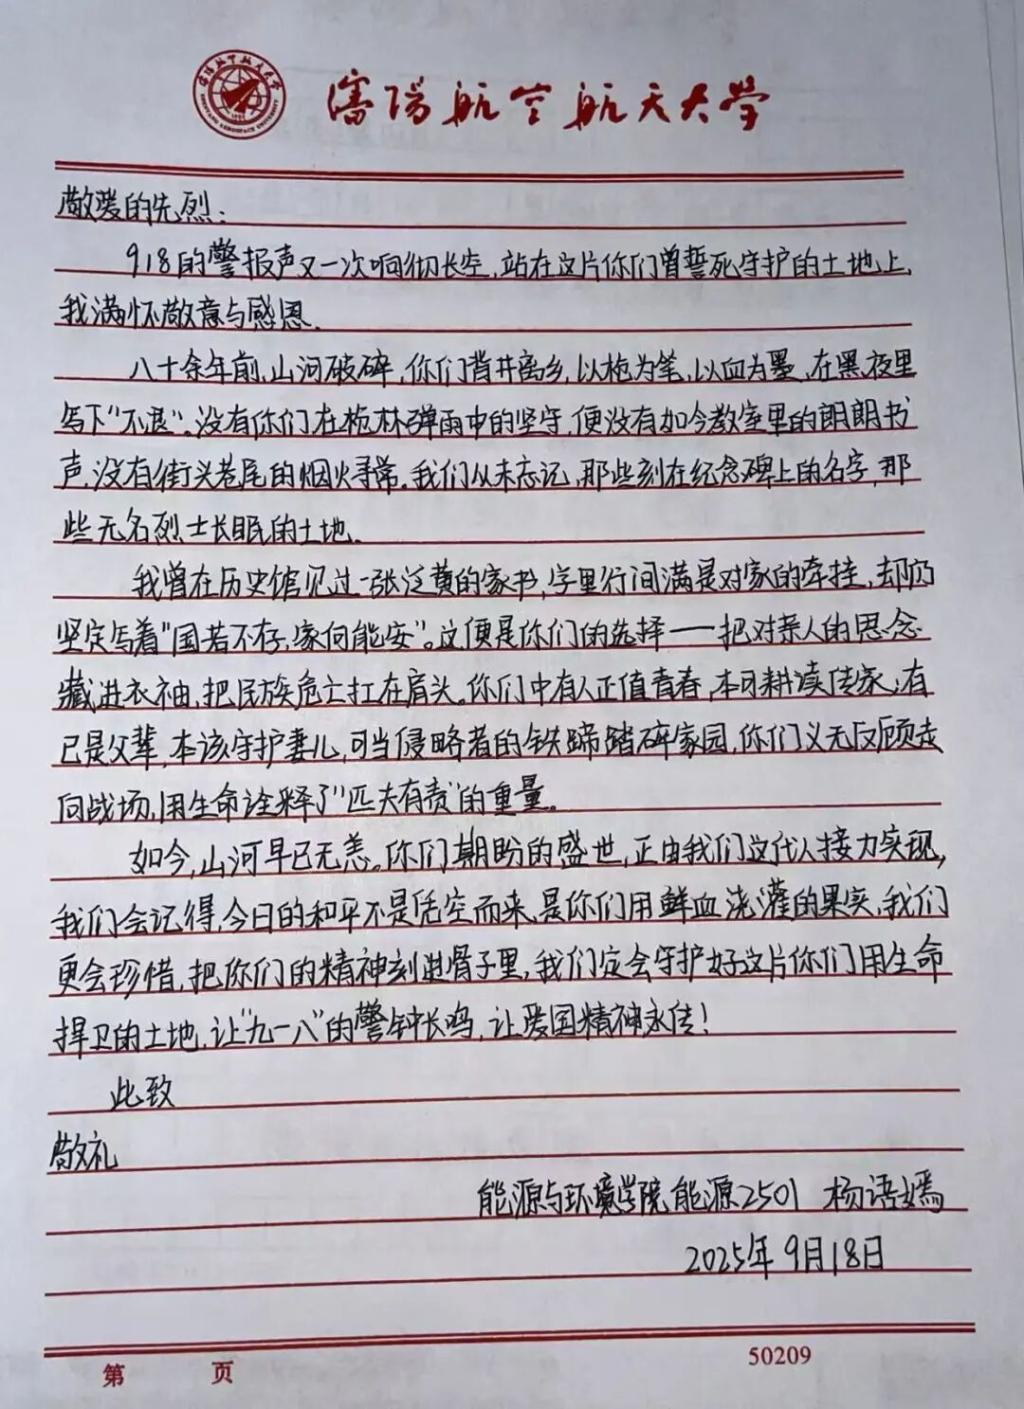 沈阳航空航天大学
敬爱的先烈：
918的警报声又一次响彻长空，站在这片你们曾誓死守护的土地上，
我满怀敬意与感恩.
八十余年前，山河破碎，你们背井离乡，以枪为笔，以血为墨，在黑夜里
写下"不退"。没有你们在枪林弹雨中的坚守，便没有如今教室里的朗朗书
声，没有街头巷尾的烟火寻常。我们从未忘记，那些刻在纪念碑上的名字，那
些无名烈士长眠的土地.
我曾在历史馆见过一张泛黄的家书，字里行间满是对家的牵挂，却仍
坚定写着"国若不存，家何能安"。这便是你们的选择——把对亲人的思念
藏进衣袖，把民族危亡扛在肩头。你们中有人正值青春，本可耕读传家，有
已是父辈，本该守护妻儿，可当侵略者的铁蹄踏碎家园，你们义无反顾走
向战场，用生命诠释了"匹夫有责"的重量。
如今，山河早已无恙。你们期盼的盛世，正由我们这代人接力实现，
我们会记得，今日的和平不是凭空而来，是你们用鲜血浇灌的果实，我们
更会珍惜，把你们的精神刻进骨子里，我们定会守护好这片你们用生命
捍卫的土地，让"九一八"的警钟长鸣，让爱国精神永传！
此致
敬礼
能源与环境学院能源2501 杨语嫣
2025年9月18日
第 页
50209